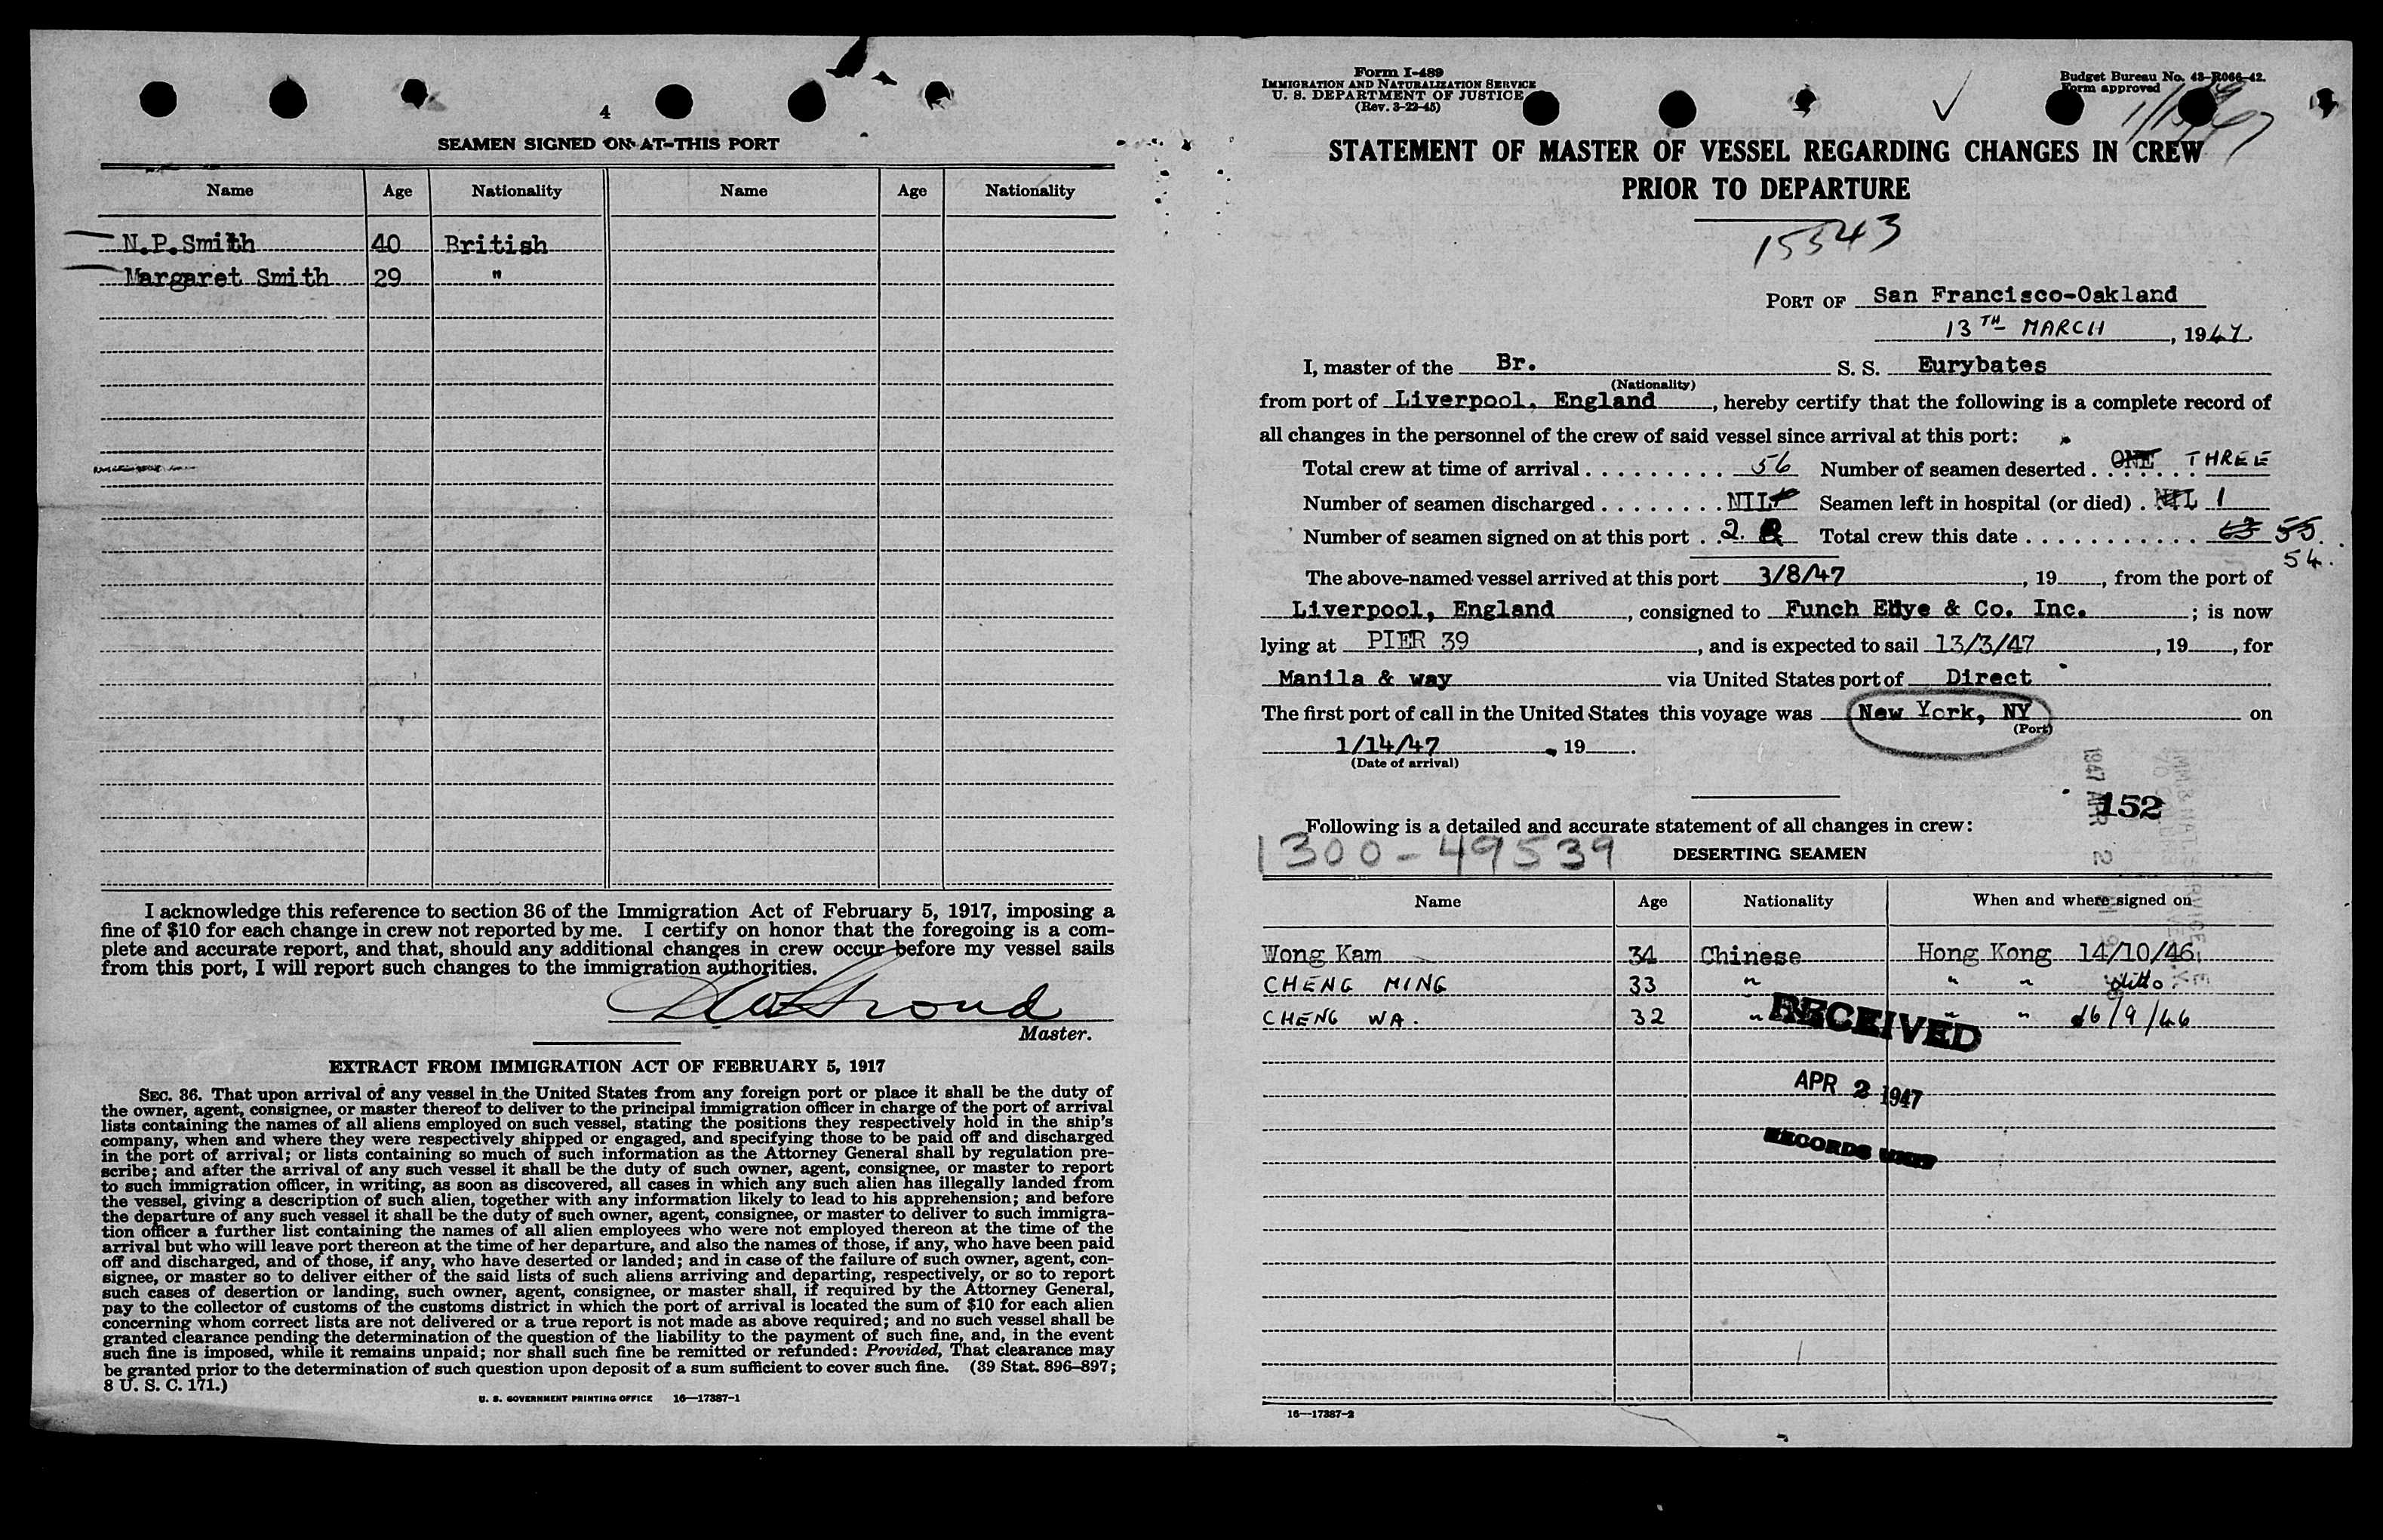 4
SEAMEN SIGNED ON AT THIS PORT
Name Age Nationality Name Age Nationality
N.P.Smith 40 British
Margaret Smith 29 "
I acknowledge this reference to section 36 of the Immigration Act of February 5, 1917, imposing a
fine of $10 for each change in crew not reported by me. I certify on honor that the foregoing is a com-
plete and accurate report, and that, should any additional changes in crew occur before my vessel sails
from this port, I will report such changes to the immigration authorities.
Master.
EXTRACT FROM IMMIGRATION ACT OF FEBRUARY 5, 1917
SEC. 36. That upon arrival of any vessel in the United States from any foreign port or place it shall be the duty of
the owner, agent, consignee, or master thereof to deliver to the principal immigration officer in charge of the port of arrival
lists containing the names of all aliens employed on such vessel, stating the positions they respectively hold in the ship's
company, when and where they were respectively shipped or engaged, and specifying those to be paid off and discharged
in the port of arrival; or lists containing so much of such information as the Attorney General shall by regulation pre-
scribe; and after the arrival of any such vessel it shall be the duty of such owner, agent, consignee, or master to report
to such immigration officer, in writing, as soon as discovered, all cases in which any such alien has illegally landed from
the vessel, giving a description of such alien, together with any information likely to lead to his apprehension; and before
the departure of any such vessel it shall be the duty of such owner, agent, consignee, or master to deliver to such immigra-
tion officer a further list containing the names of all alien employees who were not employed thereon at the time of the
arrival but who will leave port thereon at the time of her departure, and also the names of those, if any, who have been paid
off and discharged, and of those, if any, who have deserted or landed; and in case of the failure of such owner, agent, con-
signee, or master so to deliver either of the said lists of such aliens arriving and departing, respectively, or so to report
such cases of desertion or landing, such owner, agent, consignee, or master shall, if required by the Attorney General,
pay to the collector of customs of the customs district in which the port of arrival is located the sum of $10 for each alien
concerning whom correct lists are not delivered or a true report is not made as above required; and no such vessel shall be
granted clearance pending the determination of the question of the liability to the payment of such fine, and, in the event
such fine is imposed, while it remains unpaid; nor shall such fine be remitted or refunded: Provided, That clearance may
be granted prior to the determination of such question upon deposit of a sum sufficient to cover such fine. (39 Stat. 896-897;
8 U. S. C. 171.)
U. S. GOVERNMENT PRINTING OFFICE 16—17387-1
Form I-489
IMMIGRATION AND NATURALIZATION SERVICE
U. S. DEPARTMENT OF JUSTICE
(Rev. 3-22-45)
Budget Bureau No. 43-R066-42.
Form approved
STATEMENT OF MASTER OF VESSEL REGARDING CHANGES IN CREW
PRIOR TO DEPARTURE
15543
PORT OF San Francisco-Oakland
13TH MARCH, 1947.
I, master of the Br. S. S. Eurybates
(Nationality)
from port of Liverpool, England, hereby certify that the following is a complete record of
all changes in the personnel of the crew of said vessel since arrival at this port:
Total crew at time of arrival . . . . . . . . . 56 Number of seamen deserted . ONE THREE
Number of seamen discharged . . . . . . . . NIL Seamen left in hospital (or died) . NIL 1
Number of seamen signed on at this port . . 2. Total crew this date . . . . . . . . . . . 63 55.
54.
The above-named vessel arrived at this port 3/8/47, 19 , from the port of
Liverpool, England, consigned to Funch Edye & Co. Inc. ; is now
lying at PIER 39, and is expected to sail 13/3/47, 19 , for
Manila & way via United States port of Direct
The first port of call in the United States this voyage was New York, NY on
(Port)
1/14/47, 19 .
(Date of arrival)
1947 APR 2
152
Following is a detailed and accurate statement of all changes in crew:
1300-49539 DESERTING SEAMEN
Name Age Nationality When and where signed on
Wong Kam 34 Chinese Hong Kong 14/10/46
CHENG MING 33 " " " ditto.
CHENG WA. 32 " " " 16/9/46
RECEIVED
APR 2 1947
RECORDS UNIT
16—17387-2